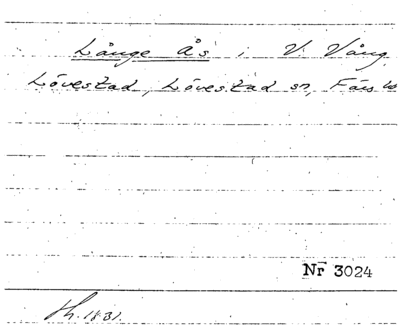 Långe Ås i V. Vång
Lövestad, Lövestad sn, Färs hd
Nr 3024
Sk. 1831.